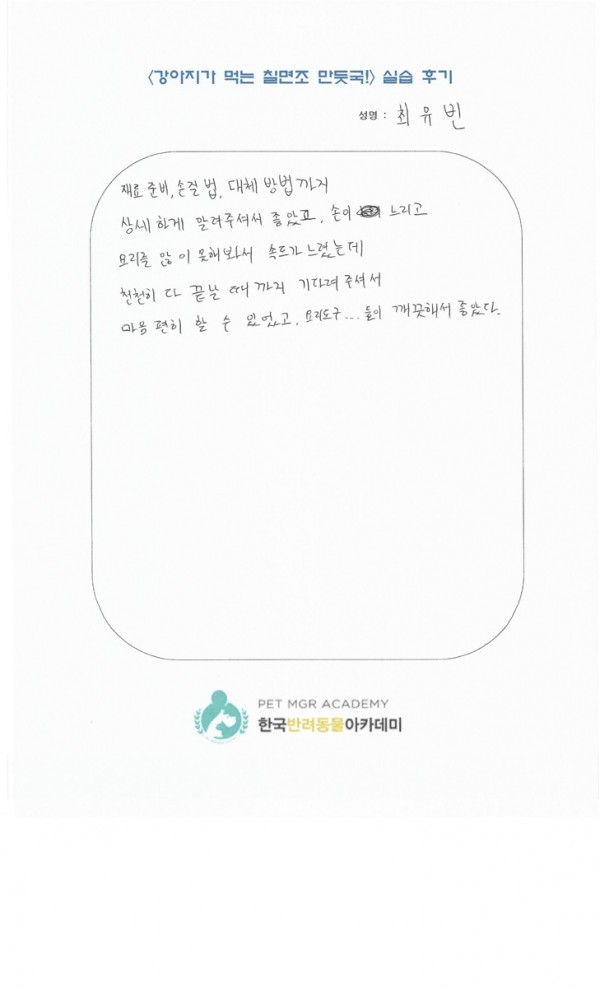 <강아지가 먹는 칠면조 만둣국!> 실습 후기
성명 : 최유빈
재료 준비, 손질 법, 대체 방법까지
상세하게 알려주셔서 좋았고, 손이 느리고
요리를 많이 못해봐서 속도가 느렸는데
천천히 다 끝날 때 까지 기다려 주셔서
마음 편히 할 수 있었고, 요리도구... 들이 깨끗해서 좋았다.
PET MGR ACADEMY
한국반려동물아카데미